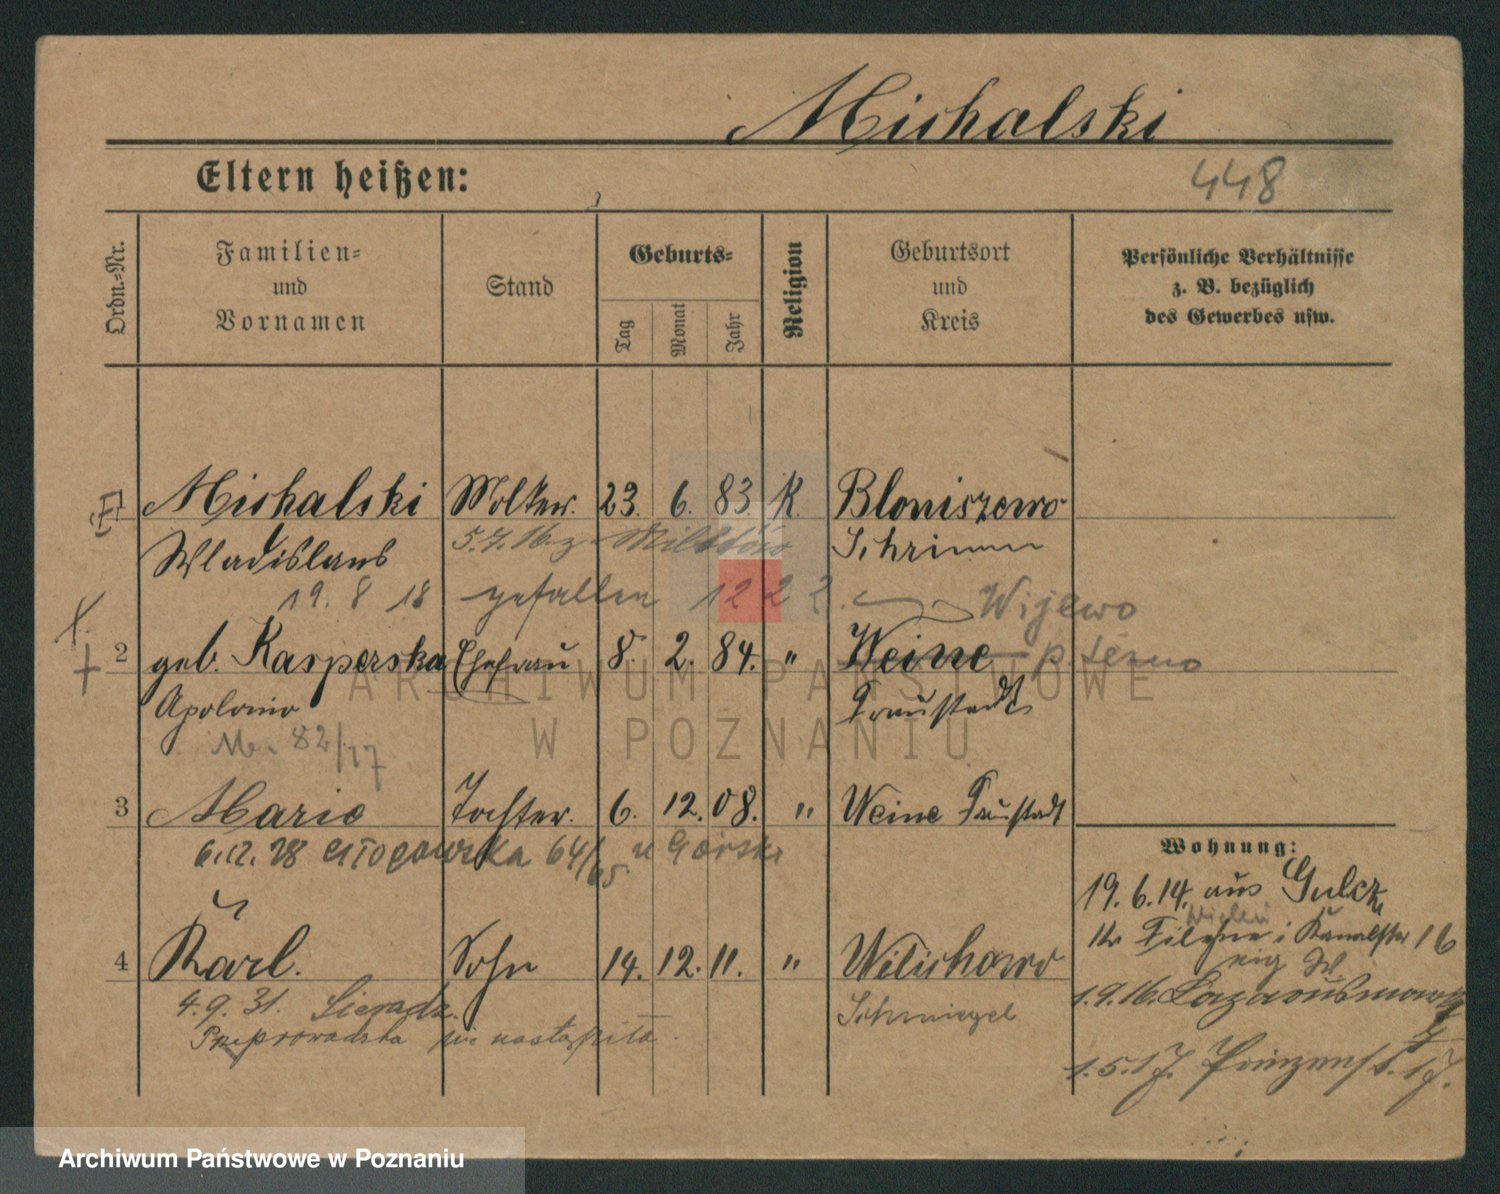 Michalski
Eltern heißen:
448
Ordn.-Nr.
Familien-
und
Vornamen
Stand
Geburts-
Tag
Monat
Jahr
Religion
Geburtsort
und
Kreis
Persönliche Verhältnisse
z. B. bezüglich
des Gewerbes usw.
Michalski Molker. 23. 6. 83. K. Bloniszewo
Wladislaus 5.7.16. z. Militär Schrimm
19. 8 18 gefallen 12 2 2. Wijewo
2 geb. Kasperska Ehefrau 8. 2. 84. " Weine
Apolonia Fraustadt
82/17
3 Marie Tochter. 6. 12. 08. " Weine Fraustadt
6.12.28 Głogowska 64/65 u Górski
Wohnung:
19.6.14. aus Gulcz
Kr Filehne i Kanalstr 16
4 Karl. Sohn 14. 12. 11. " Wilichowo
4.9.31. Sieradz. Schmiegel
Przeprowadzka nie nastąpiła.
1.9.16. Lazarusmarkt
1.5.17. Prinzenst. 17.
ARCHIWUM PAŃSTWOWE
W POZNANIU
Archiwum Państwowe w Poznaniu